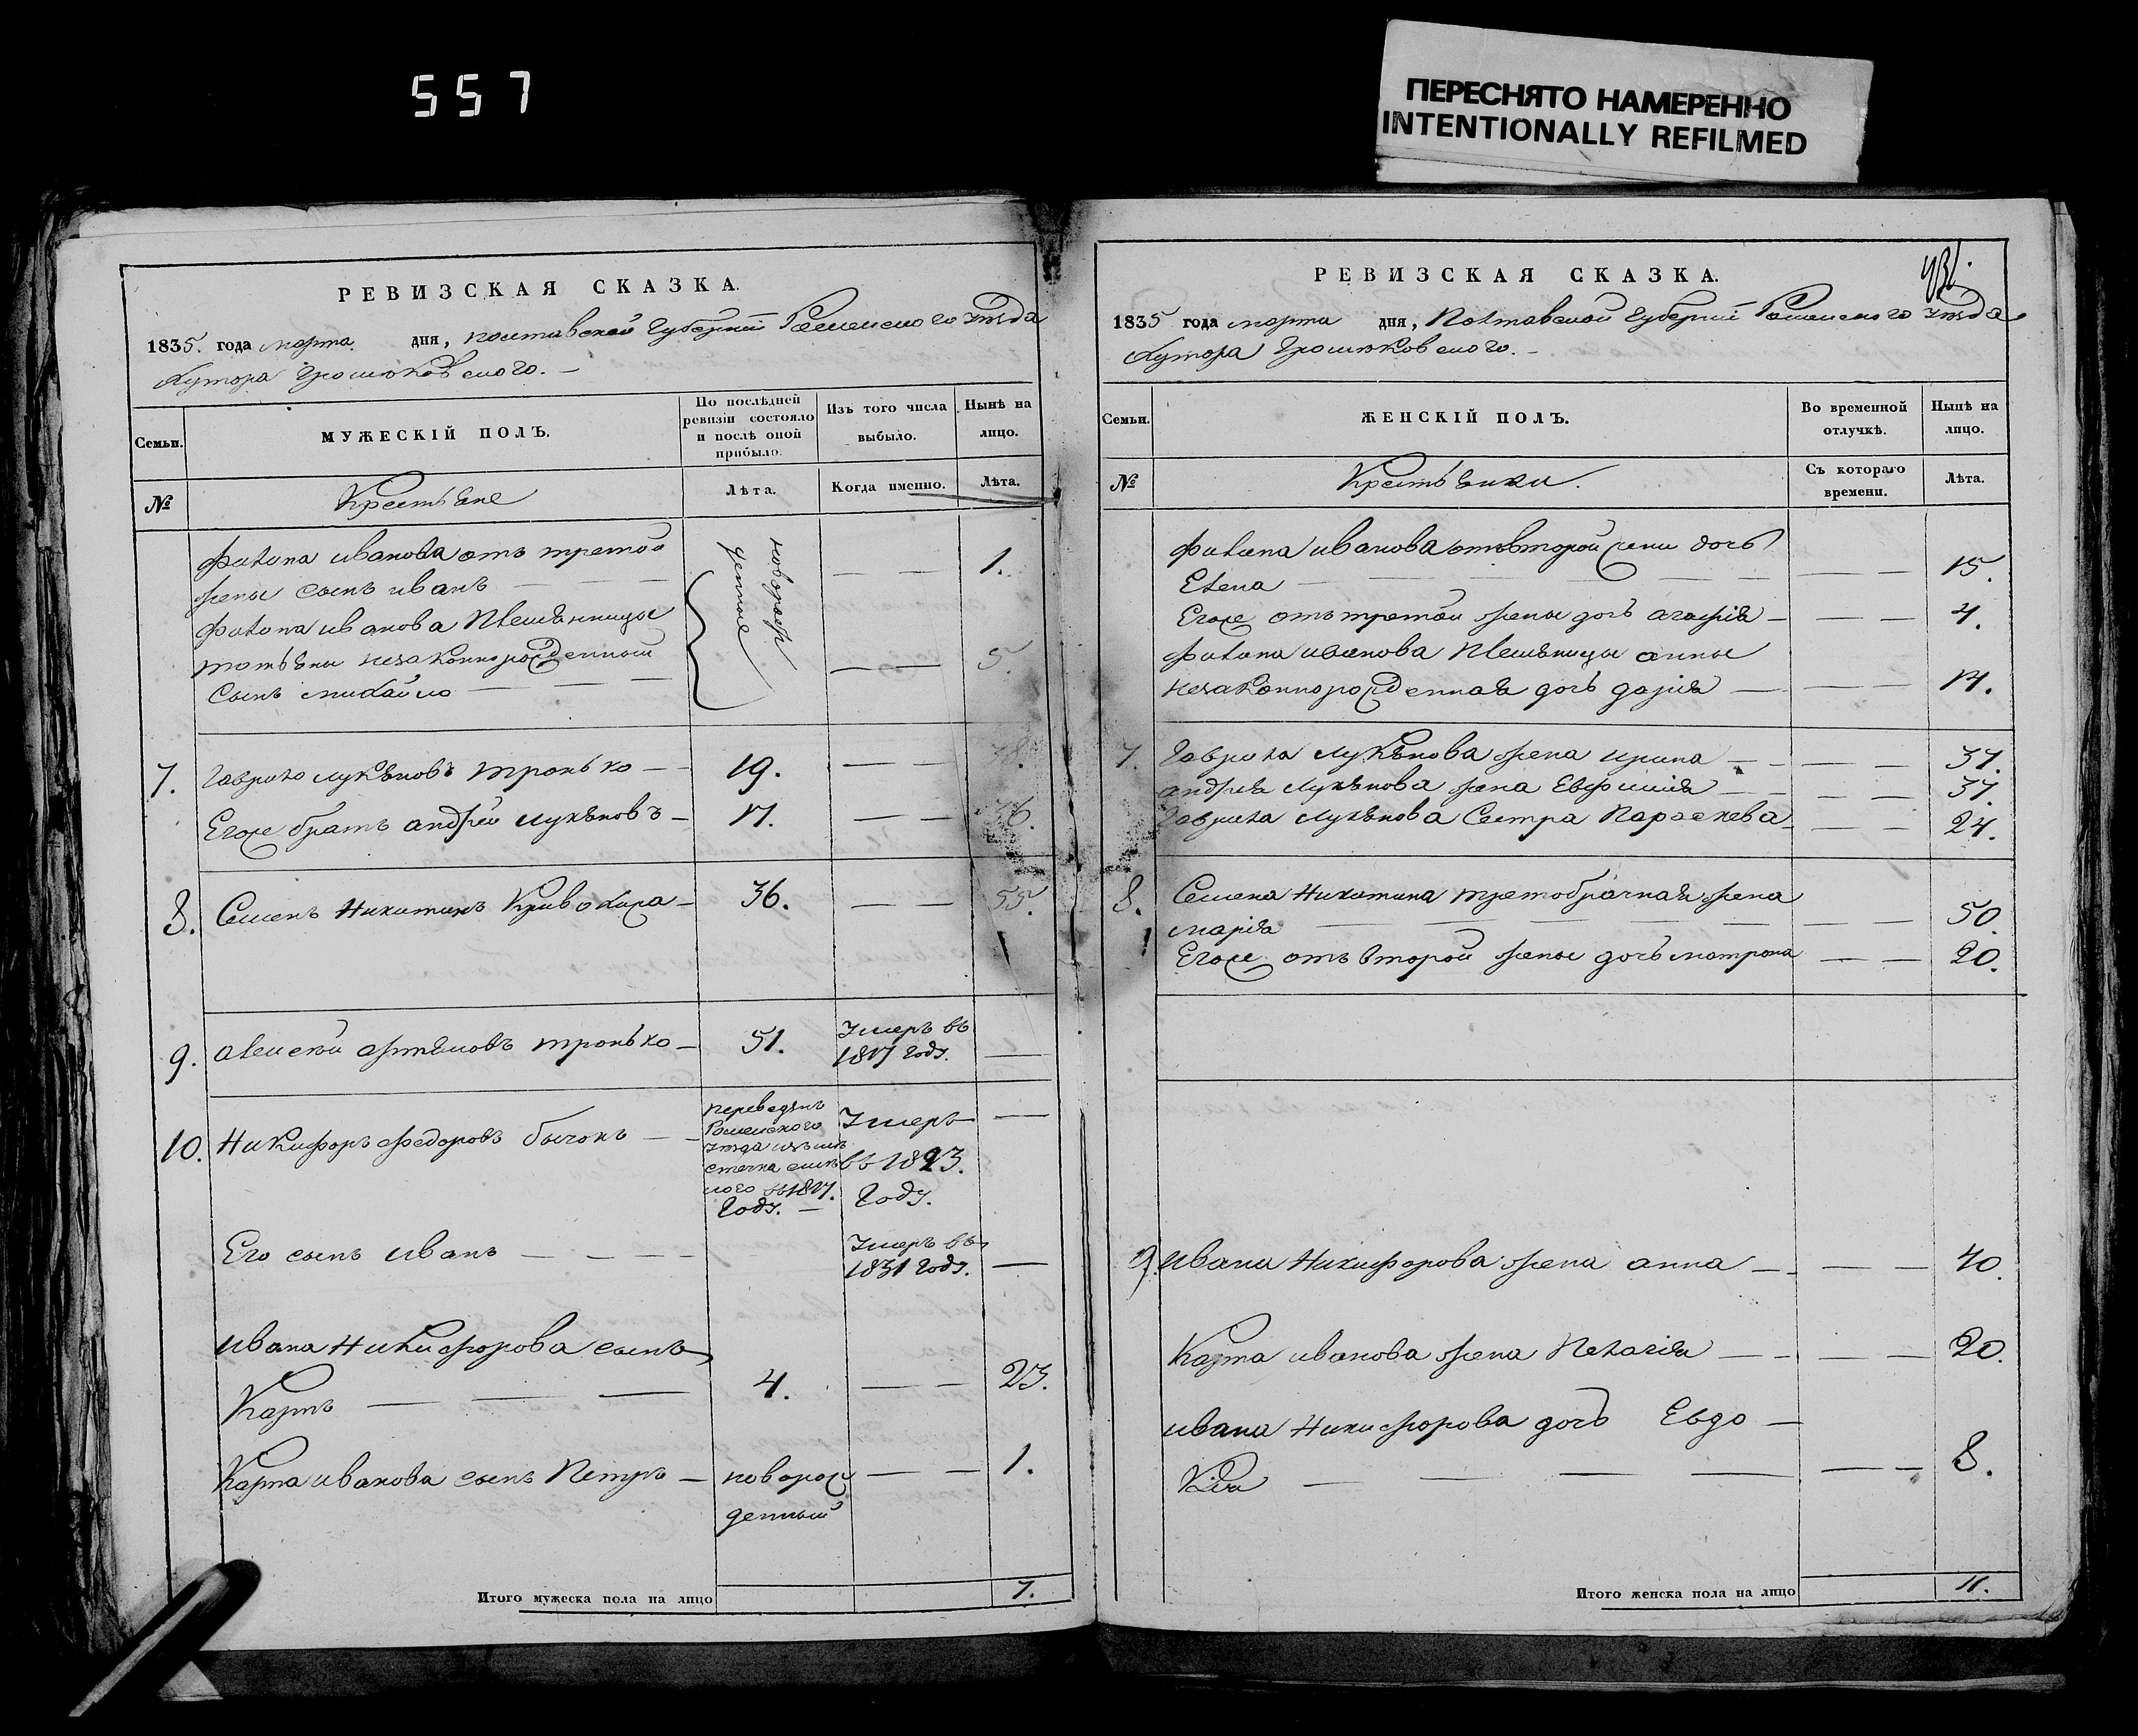 557
ПЕРЕСНЯТО НАМЕРЕННО
INTENTIONALLY REFILMED
РЕВИЗСКАЯ СКАЗКА.
1835. года марта дня, полтавской Губерніи Роменского уезда
Хутора
По послѣдней ревизіи состояло и послѣ оной прибыло.
Изъ того числа выбыло.
Нынѣ на лицо.
Семьи.
МУЖЕСКІЙ ПОЛЪ.
№
Крестьяне
Лѣта.
Когда именно.
Лѣта.
Филипа иванова отъ третой
жены сынъ иванъ — — — 1.
новорож
денные
Филипа иванова племянницы
татьяни незаконнорожденный
сынъ михайло — — — 5.
7. Гаврило лукяновъ тронько — 19. — — 38.
Егож братъ андрей лукяновъ — 17. — — 36.
8. Семенъ Никитинъ Кривохижа — 36. — — 55.
9. алексѣй артямовъ тронько — 51. Умеръ въ
1817 Году. —
10. Никифоръ Федоровъ бычокъ — —
переведенъ
Роменского
уезда изъ мѣ
стечка
1817.
Году. —
Умеръ
въ 1823.
Году.
—
Его сынъ иванъ — — — Умеръ въ
1831 Году. —
ивана Никифорова сынъ
Карпъ — — — 4. — — 23.
Карпа иванова сынъ Петръ — новорож — — 1.
денный
Итого мужеска пола на лицо 7.
РЕВИЗСКАЯ СКАЗКА.
1835 года марта дня, Полтавской Губерніи Роменского уезда
Хутора
Семьи.
ЖЕНСКІЙ ПОЛЪ.
Во временной отлучкѣ.
Нынѣ на лицо.
№
Крестьянки.
Съ котораго времени.
Лѣта.
Филипа иванова отъ второй жени дочь
Елена — — — 15.
Егож отъ третой жены дочь агафія — — — 4.
Филипа иванова племяницы анны
незаконнорожденная дочь дарія — — — 14.
7. Гаврила лукянова жена ирина — — — 37.
андрея лукянова жена Евфимія — — — 37.
Гаврила лукянова Сестра Параскева — — 24.
8. Семена Никитина третобрачная жена
марія — — — 50.
Егож отъ второй жены дочь матрона — — 20.
9. ивана Никифорова жена анна — — — 40.
Карпа иванова жена Пелагія — — — 20.
ивана Никифорова дочь Евдо —
кія — — — 8.
Итого женска пола на лицо 11.